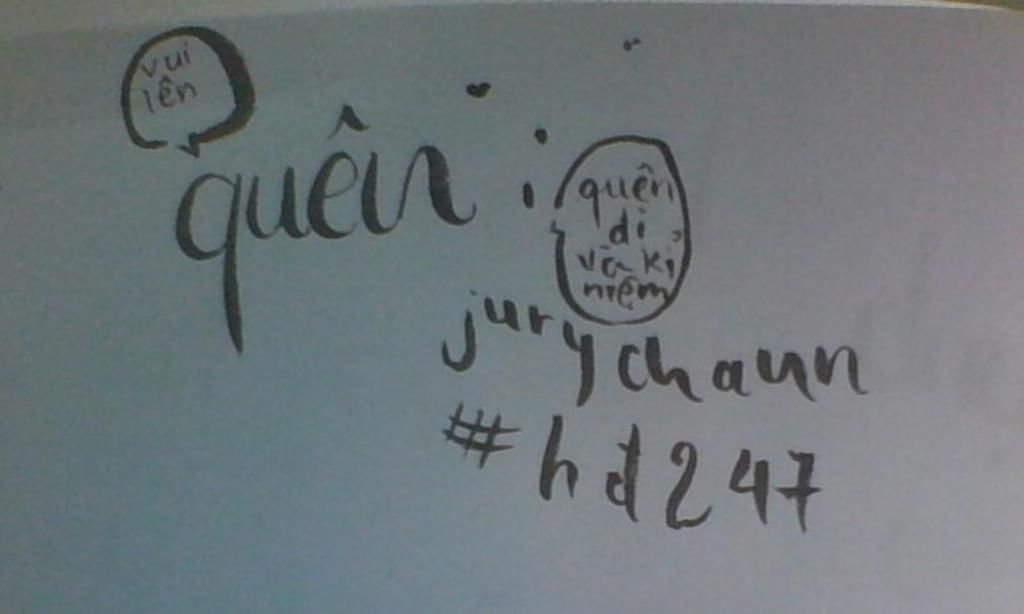 vui
lên
quên :
quên
di
và kỉ
niệm
jury chaun
#hđ247